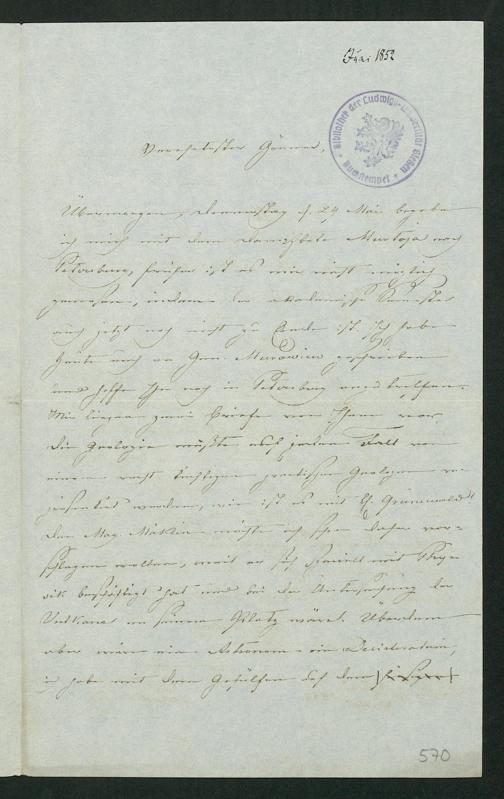 Juni 1852
Bibliothek der Ludwigs-Universität Giessen
Verehrtester Gönner,
Übermorgen, Donnerstag d. 24 Mai begebe
ich mich mit dem Dampfbote nach
Petersburg, früher ist es mir nicht möglich
gewesen, indem das akademische Semester
auch jetzt noch nicht zu Ende ist. Ich habe
heute auch an Gen. geschrieben
und hoffe Ihn noch in Petersburg anzutreffen.
Mir liegen zwei Briefe von Ihnen vor
die Geologie müßte auf jeden Fall von
einem recht tüchtigen practischen Geologen re-
präsentirt werden, wie ist es mit H. Grünewaldt
den Mag. möchte ich Ihnen daher vor-
schlagen wollen, weil er sich speciell mit
beschäftigt hat und bei der Untersuchung der
Vulkane an seinem Platz wäre. Überdem
aber wäre ein Astronom ein Desideratum,
ich habe mit dem Gehülfen auf dem
570